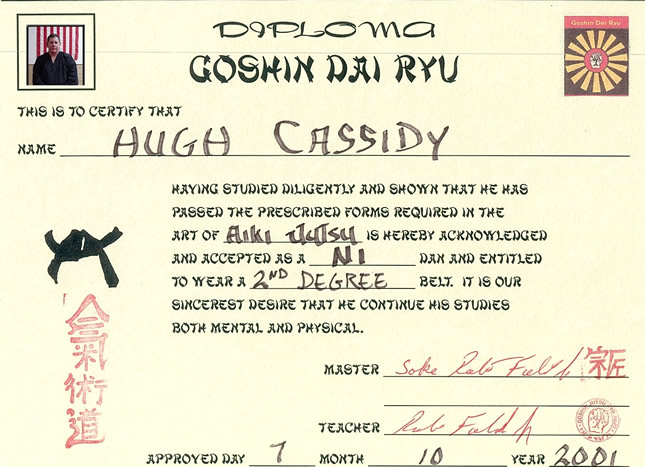 DIPLOMA
GOSHIN DAI RYU
Goshin Dai Ryu
THIS IS TO CERTIFY THAT
NAME HUGH CASSIDY
HAVING STUDIED DILIGENTLY AND SHOWN THAT HE HAS
PASSED THE PRESCRIBED FORMS REQUIRED IN THE
ART OF Aiki JuJsu IS HEREBY ACKNOWLEDGED
AND ACCEPTED AS A NI DAN AND ENTITLED
TO WEAR A 2ND DEGREE BELT. IT IS OUR
SINCEREST DESIRE THAT HE CONTINUE HIS STUDIES
BOTH MENTAL AND PHYSICAL.
合氣術道
MASTER Soke
TEACHER
APPROVED DAY 7 MONTH 10 YEAR 2001